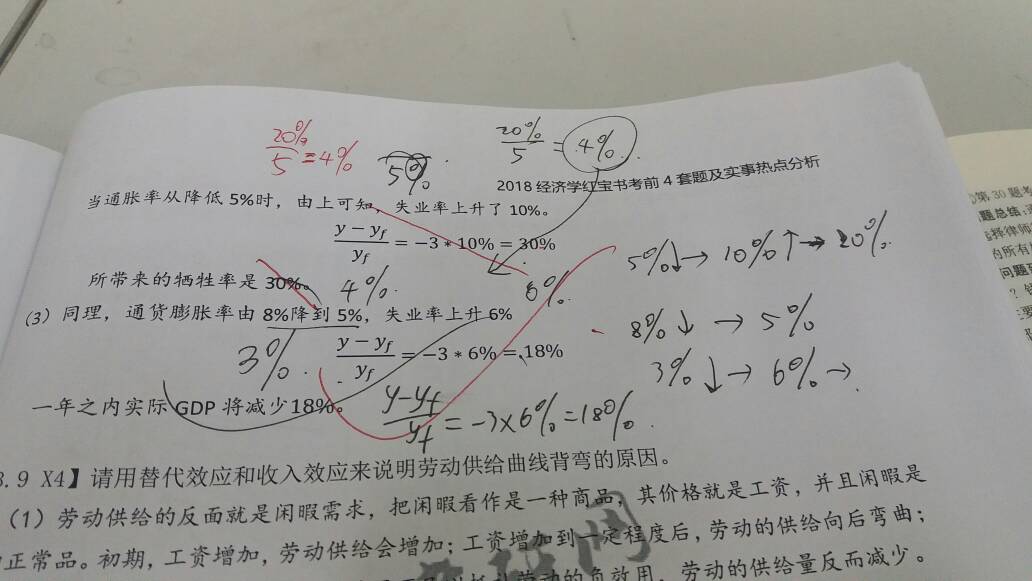 20%/5=4%
5%
20%/5=4%
2018 经济学红宝书考前 4 套题及实事热点分析
当通胀率从降低 5%时，由上可知，失业率上升了 10%。
(y − y_f)/y_f = −3 * 10% = 30%
5%↓→10%↑→20%
所带来的牺牲率是 30%。
4%
8%
(3) 同理，通货膨胀率由 8%降到 5%，失业率上升 6%
8%↓ → 5%
3%
(y − y_f)/y_f = −3 * 6% = 18%
3%↓→6%→
一年之内实际 GDP 将减少 18%。
(y−y_f)/y_f = −3×6%=18%
.9 X4】请用替代效应和收入效应来说明劳动供给曲线背弯的原因。
（1）劳动供给的反面就是闲暇需求，把闲暇看作是一种商品，其价格就是工资，并且闲暇是
正常品。初期，工资增加，劳动供给会增加；工资增加到一定程度后，劳动的供给向后弯曲；
劳动的负效用，劳动的供给量反而减少。
第 30 题
题总结
选择律师
的所有
问题